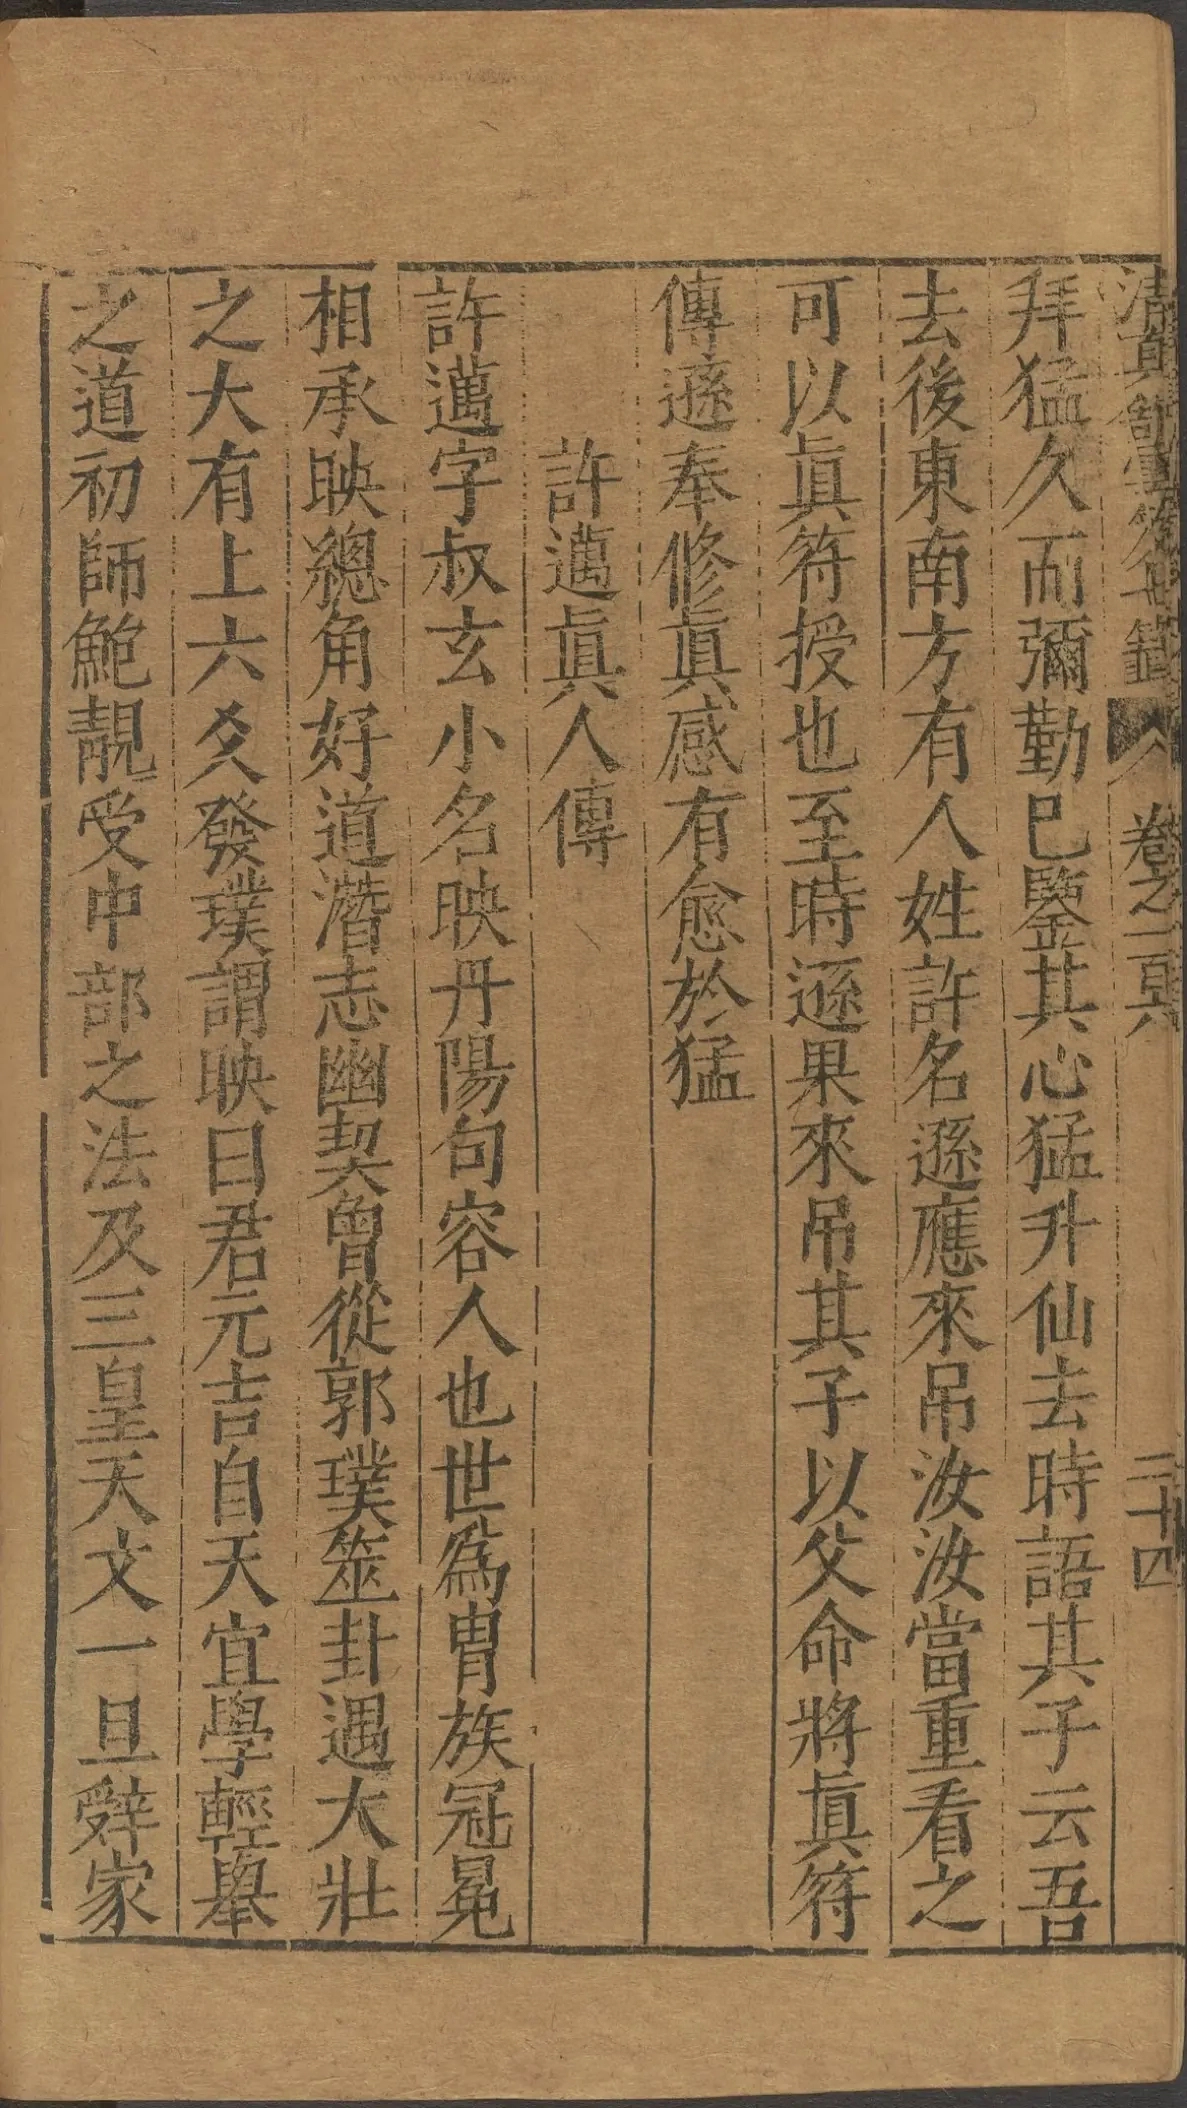 卷之一頁 二十四
拜猛久而彌勤已鑒其心猛升仙去時語其子云吾
去後東南方有人姓許名遜應來吊汝汝當重看之
可以眞符授也至時遜果來吊其子以父命將眞符
傳遜奉修眞感有愈於猛
許邁眞人傳
許邁字叔玄小名映丹陽句容人也世爲胄族冠冕
相承映總角好道潛志幽契曾從郭璞筮卦遇大壯
之大有上六爻發璞謂映曰君元吉自天宜學輕舉
之道初師鮑靚受中部之法及三皇天文一旦辭家